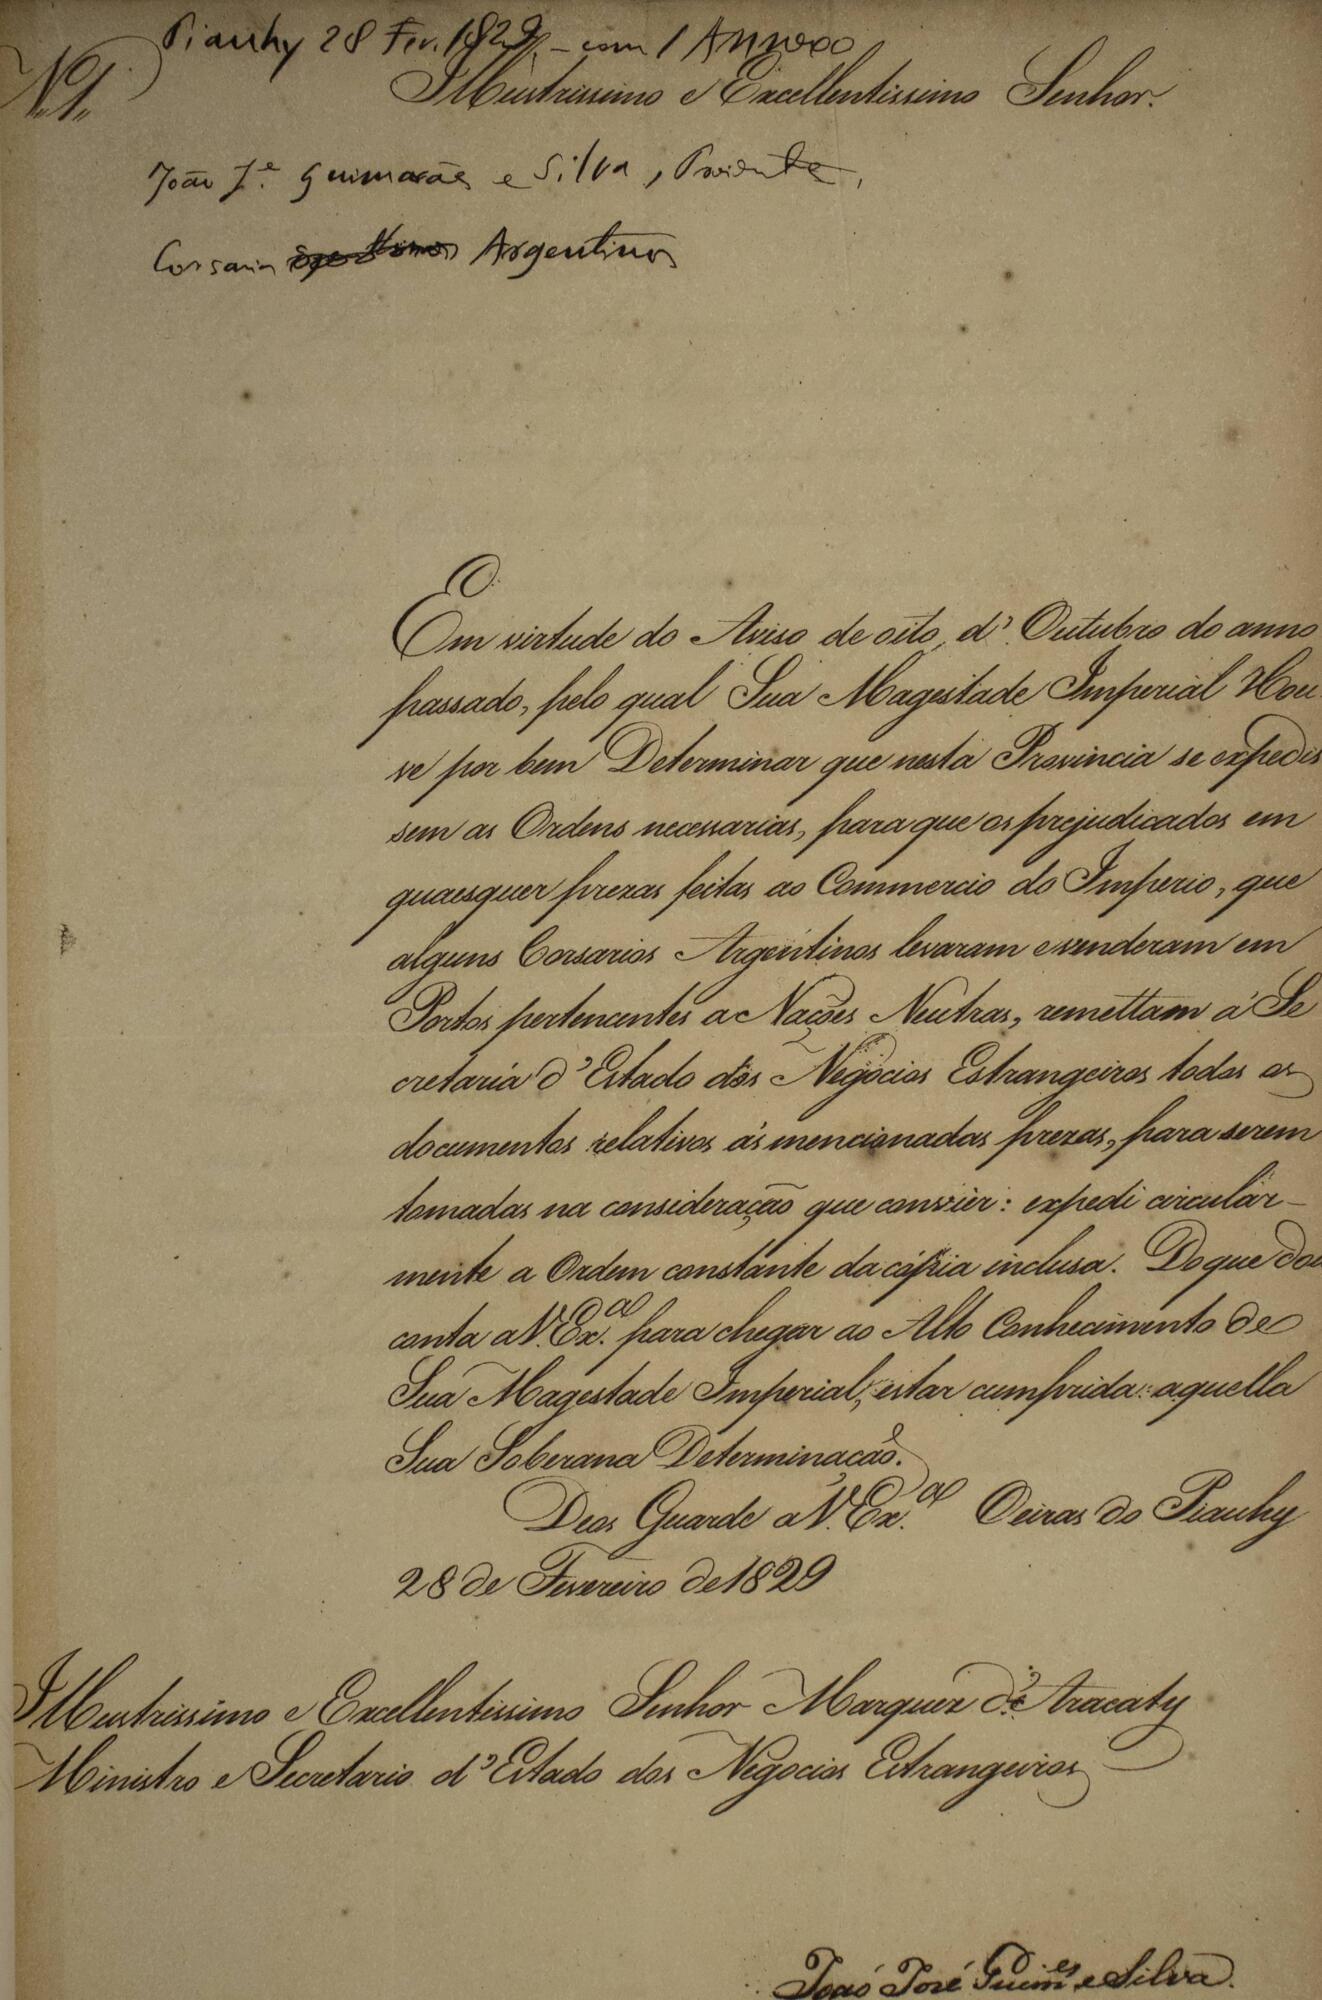 Piauhy 28 Fev. 1829, - com 1 Annexo
N.1.
Illustrissimo e Excellentissimo Senhor.
João J.e Guimarães e Silva, Presidente,
Corsarios Argentinos
Em virtude do Aviso de oito, d'Outubro do anno
passado, pelo qual Sua Magestade Imperial Hou
ve por bem Determinar que nesta Provincia se expedis
sem as Ordens necessarias, para que os prejudicados em
quaesquer prezas feitas ao Commercio do Imperio, que
alguns Corsarios Argentinos levaram e venderam em
Portos pertencentes a Nações Neutras, remettam á Se
cretaria d'Estado dos Negocios Estrangeiros todos os
documentos relativos ás mencionadas prezas, para serem
tomadas na consideração que convier: expedi circular-
mente a Ordem constante da cópia inclusa. Do que dou
conta a V. Ex.a para chegar ao Alto Conhecimento de
Sua Magestade Imperial, estar cumprida aquella
Sua Soberana Determinacão.
Deos Guarde a V. Ex.a Oeiras do Piauhy
28 de Fevereiro de 1829
Illustrissimo e Excellentissimo Senhor Marquez de Aracaty
Ministro e Secretario d'Estado dos Negocios Estrangeiros
João José Guim.es e Silva.